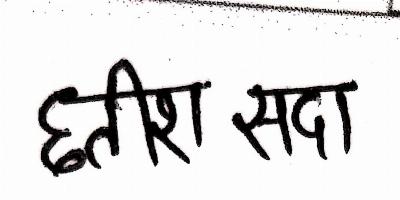 छतीश सदा